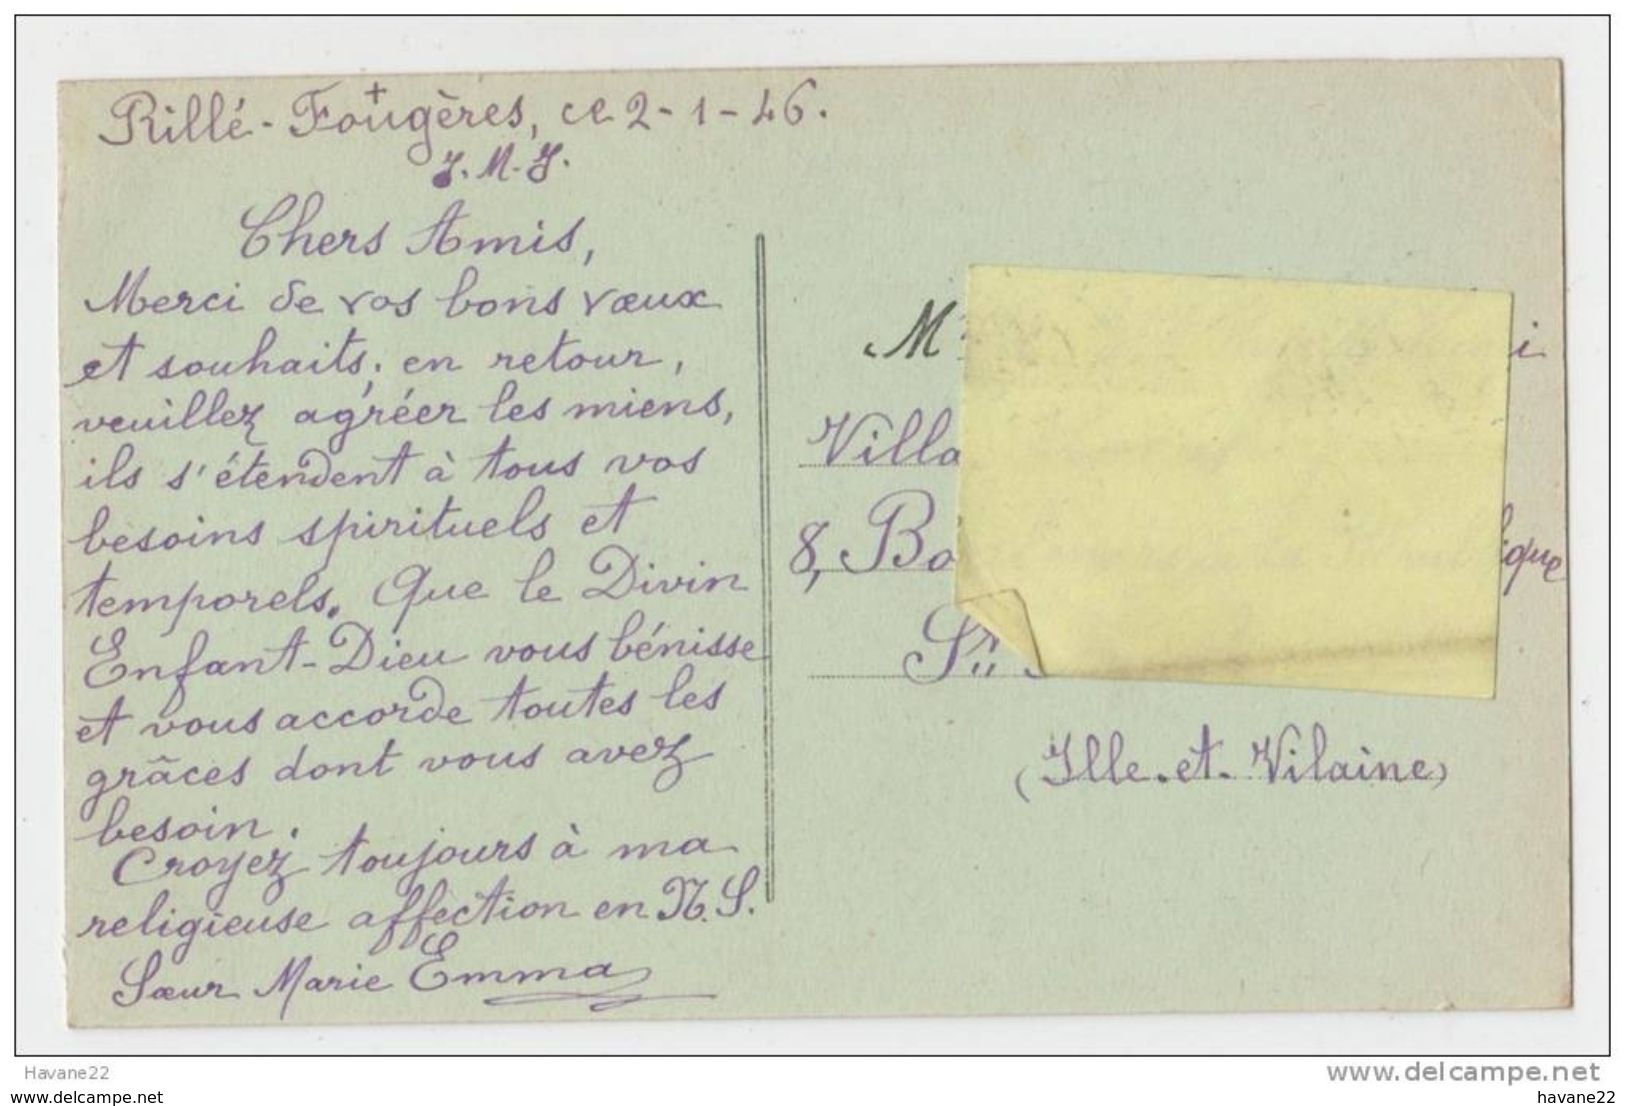 Rillé-Fougères, ce 2-1-46.
+
J.M.J.
Chers Amis,
Merci de vos bons vœux
et souhaits; en retour,
veuillez agréer les miens,
ils s'étendent à tous vos
besoins spirituels et
temporels. Que le Divin
Enfant-Dieu vous bénisse
et vous accorde toutes les
grâces dont vous avez
besoin.
Croyez toujours à ma
religieuse affection en N.S.
Sœur Marie Emma
8,
(Ille-et-Vilaine)
Havane22
www.delcampe.net
www.delcampe.net
havane22